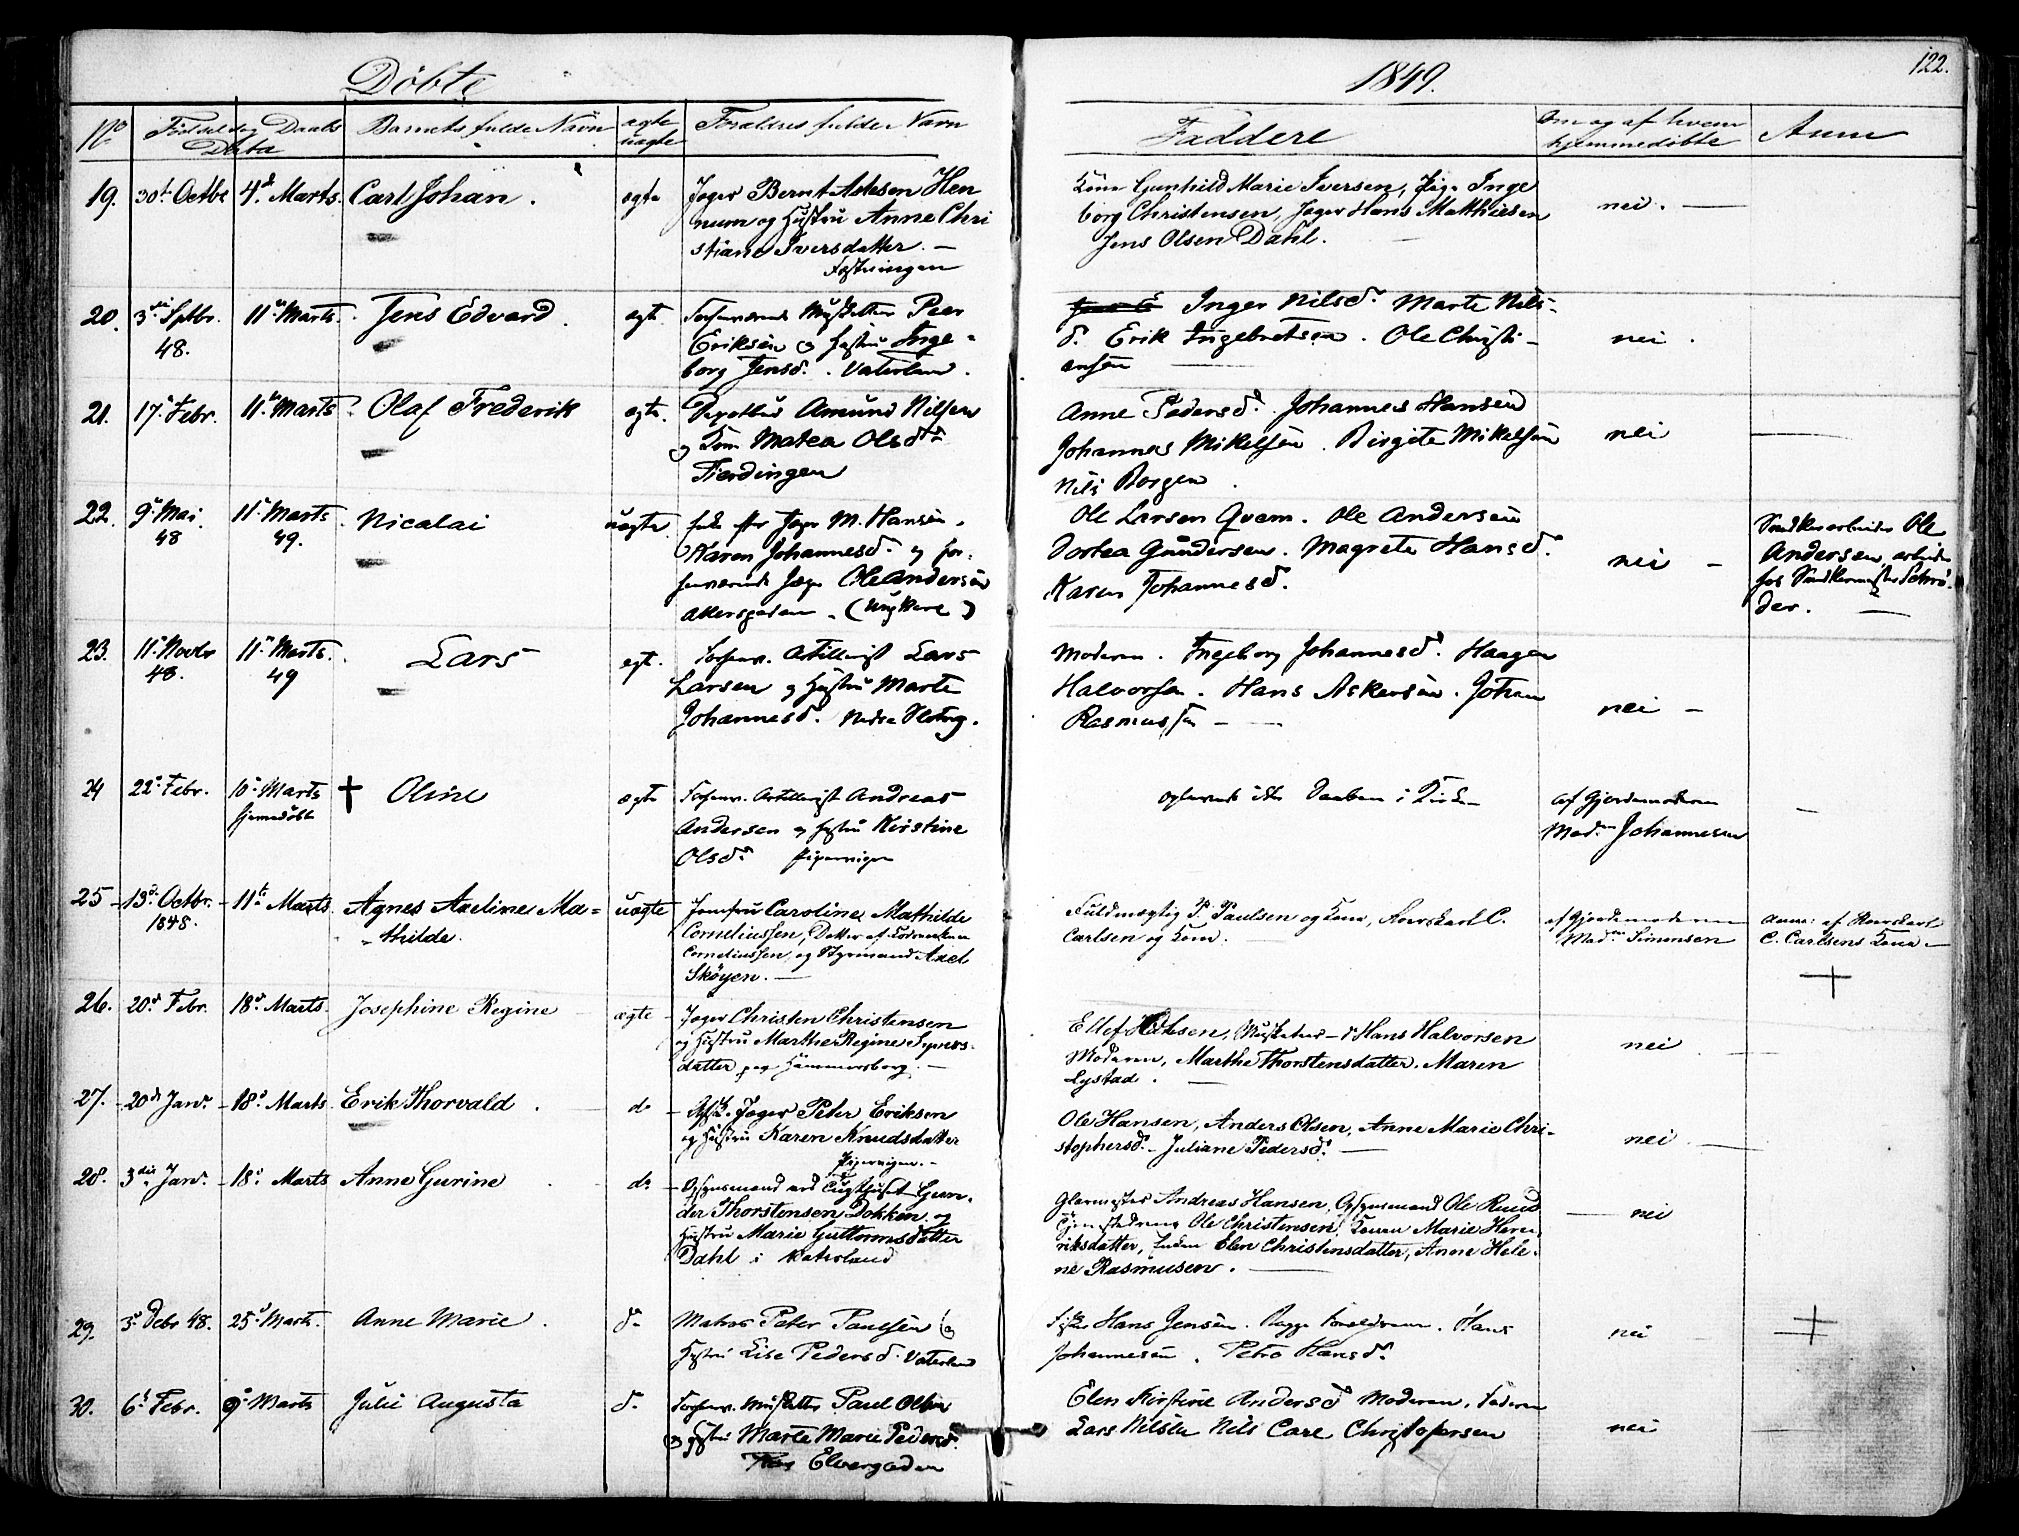 Döbte
1849.
122.
No
Födsels og Daabs
Data
Barnets fulde Navn
ægte
uægte
Forældres fulde Navn
Faddere
Om og af hvem
hjemmedöbte
Anm
19.
30t Octbr
4d Marts.
Carl Johan.
ægte
Jæger Bernt Hen
num og Hustru Anne Chri
stiane Iversdatter. —
Fæstningen
Kone Gunhild Marie Iversen, Pige Inge
borg Christensen, Jæger Hans Matthiesen
Jens Olsen Dahl.
nei. —
20.
3die Sptbr.
48.
11te Marts.
Jens Edvard.
ægt.
Forhenværende Musketter Peer
Eriksen og Hustru Inge-
borg Jensd. Vaterland.
Inger Nilsd. Marte Nils-
d. Erik Ingebretsen. Ole Christi-
ensen
nei.
21.
17 Febr.
11te Marts.
Olaf Frederik
ægte.
Amund Nilsen
og Kone Matea Olsdtr
Fierdingen
Anne Pedersd. Johannes Hansen
Johannes Mikelsen. Birgite Mikelsen
Nils Borgen.
nei
22.
9 Mai
48
11 Marts
49.
Nicolai
uægte
Jæger M. Hansen,
Karen Johannesd. og for-
henværende Jæger Ole Andersen
Akersgaden. (Ungkarl)
Ole Larsen Qvem. Ole Andersen
Dortea Gundersen. Magrete Hansd.
Karen Johannesd.
nei —
Ole
Andersen, arbeider
hos Schrö-
der. —
23.
11 Novbr
48.
11 Marts.
49
Lars
egt.
Forhenv. Artillerist Lars
Larsen og Hustru Marte
Johannesd.
Moderen. Ingeborg Johannesd. Haagen
Halvorsen. Hans Askersen. Johan
Rasmussen —
nei —
24
22 Febr.
10 Marts
hjemedöbt
Oline
ægte
Forhenv. Artillerist Andreas
Andersen og Hustru Kirstine
Olsd. Pipervigen
af Gjordemoderen
Madm Johannesen
25
13de Octbr.
1848.
11te Marts
Agnes Axeline Ma=
thilde.
uægte
Jomfru Caroline Mathilde
Corneliussen, Datter af
Corneliussen, og Styrmand Axel
Sköyen. —
Fuldmægtig P. Paulsen og Kone, C.
Carlsen og Kone.
af Gjordemoderen
Madm Simensen
Anm: af
C. Carlsens Kone —
26.
20de Febr.
18de Marts.
Josephine Regine
ægte
Jæger Christen Christensen
og Hustru Marthe Regine
datter paa Hammersborg. —
Ellef Musketeer Hans Halvorsen
Moderen, Marthe Thorstensdatter. Maren
Lystad.
nei
27.
20de Janr.
18de Marts
Erik Thorvald
do
Jæger Peter Eriksen
og Hustru Karen Knudsdatter
Pipervigen. —
Ole Hansen, Anders Olsen, Anne Marie Chri-
stophersd. Juliane Pedersd. —
nei. —
28.
3die Janr.
18de Marts
Anne Gurine
do
Opsynsmand ved Tugthuset Gun-
der Thorstensen Dokken, og
Hustru Marie Guttormsdatter
Dahl i Vaterland
Glarmester Andreas Hansen, Opsynsmand Ole Ruud
Ole Christensen, Konen Marie Hen-
riksdatter, Enken Elen Christensdatter, Anne Hele-
ne Rasmusen. —
nei
29.
3 Debr 48.
25 Marts.
Anne Marie.
d.
Matros Peter Paulsen og
Hustru Lise Pedersd. Vaterland
Hans Jensen. Begge Forældrene. Hans
Johannesen. Petra Hansd.
nei
30.
6te Febr.
9 Marts
Julie Augusta
d.
Forhenv. Musketter Paul Olsen
og Hustru Marte Marie Pedersd.
Elvegaden
Elen Kirstine Andersd Moderen. Faderen
Lars Nilsen Nils Carl Christofersen
nei